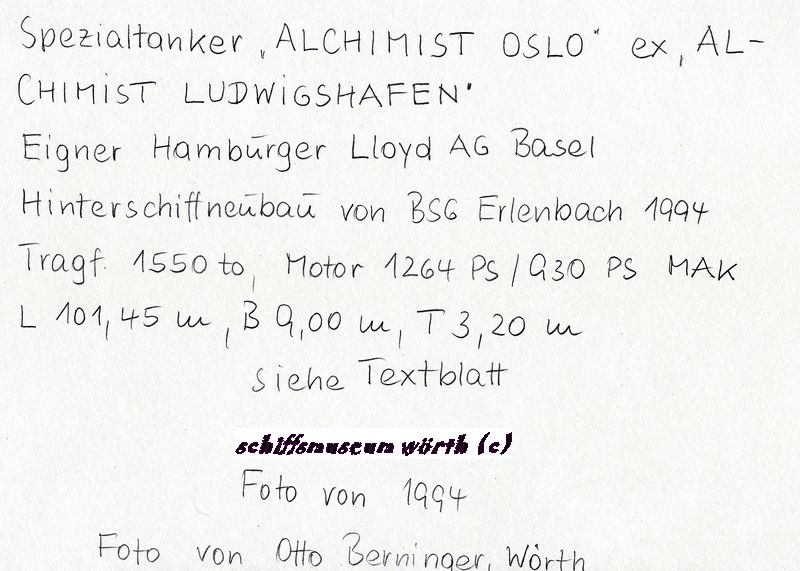 Spezialtanker „ALCHIMIST OSLO" ex „AL-
CHIMIST LUDWIGSHAFEN"
Eigner Hamburger Lloyd AG Basel
Hinterschiffneubau von BSG Erlenbach 1994
Tragf. 1550 to, Motor 1264 PS / 930 PS MAK
L 101,45 m, B 9,00 m, T 3,20 m
siehe Textblatt
schiffsmuseum wörth (c)
Foto von 1994
Foto von Otto Berninger, Wörth